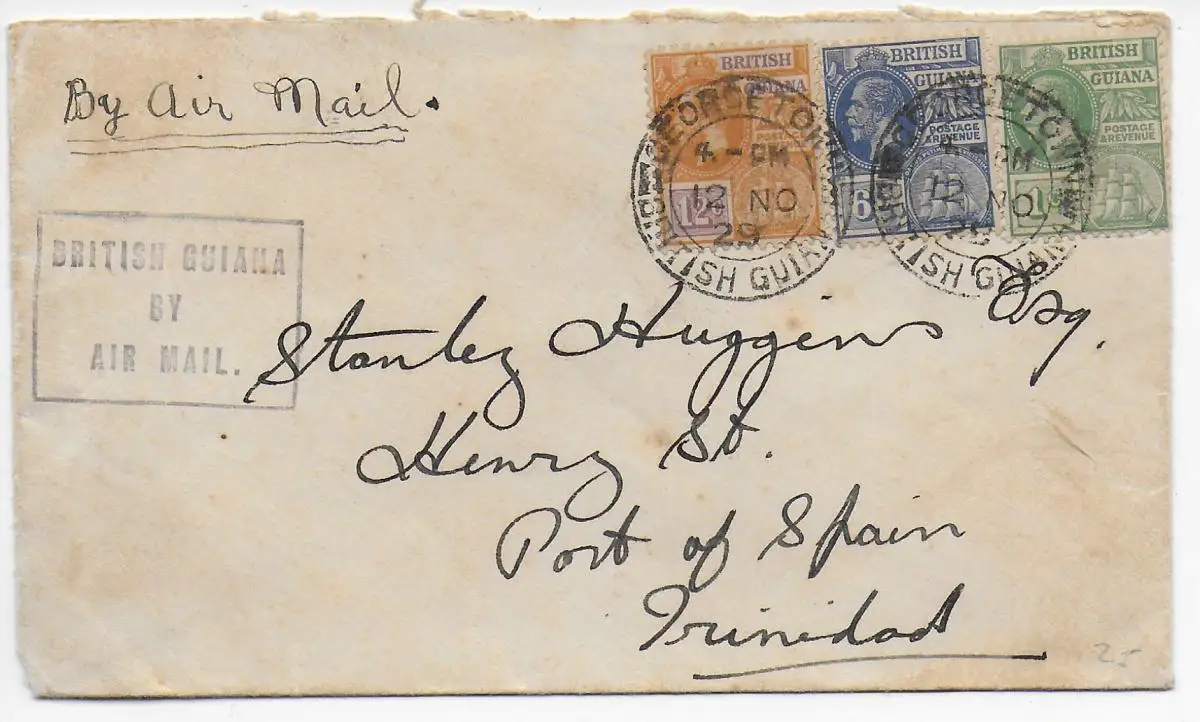 By Air Mail.
BRITISH GUIANA
POSTAGE & REVENUE
12c
BRITISH GUIANA
POSTAGE & REVENUE
6
BRITISH GUIANA
POSTAGE & REVENUE
1
GEORGETOWN
4 - PM
12 NO
29
BRITISH GUIANA
GEORGETOWN
PM
12 NO
29
BRITISH GUIANA
BRITISH GUIANA
BY
AIR MAIL.
Stanley Huggins Esq.
Henry St.
Port of Spain
Trinidad
25